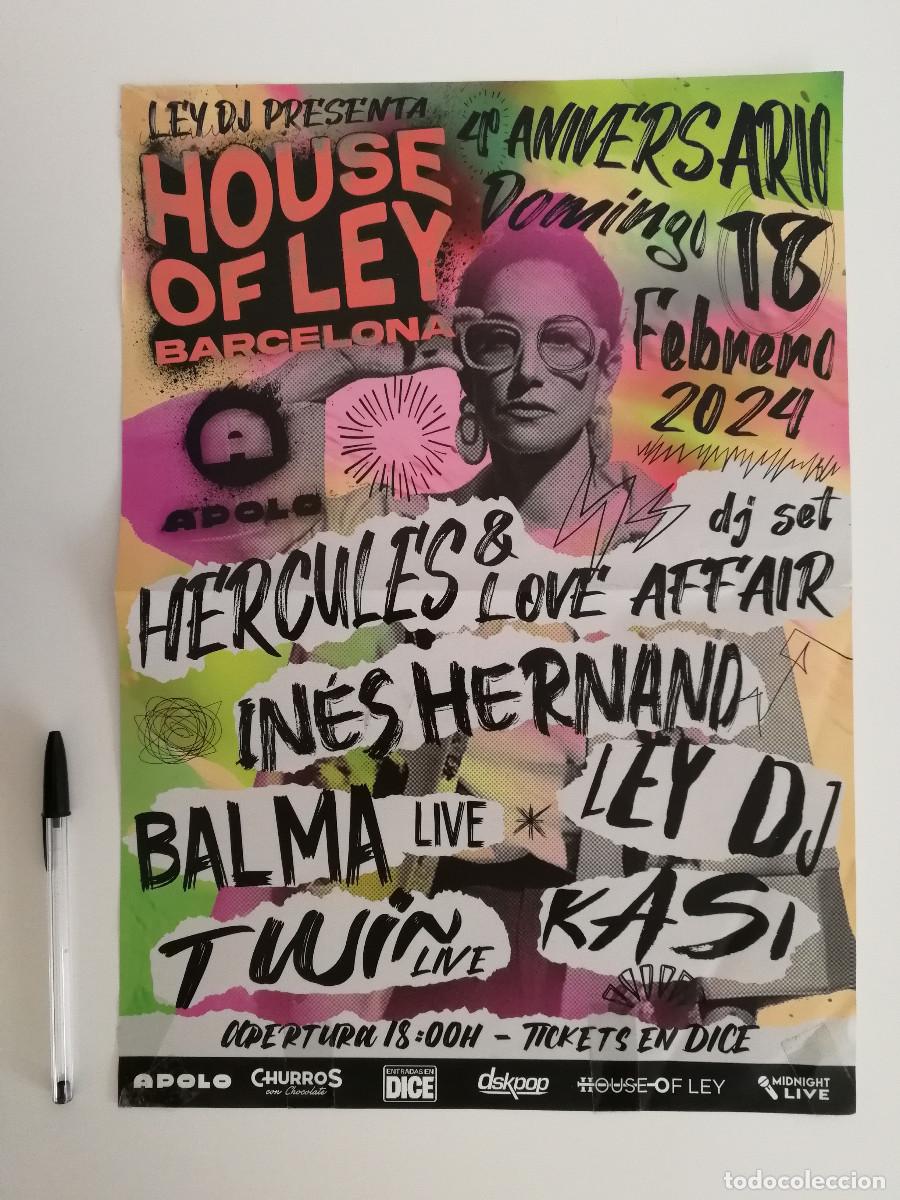 LEY DJ PRESENTA
HOUSE
OF LEY
BARCELONA
4º ANIVERSARIO
Domingo 18
Febrero
2024
A
APOLO
dj set
HERCULES & LOVE AFFAIR
INÉS HERNAND
BALMA LIVE
LEY DJ
TWIN LIVE
KASI
APERTURA 18:00H - TICKETS EN DICE
APOLO
CHURROS
con Chocolate
ENTRADAS EN
DICE
dskpop
HOUSE OF LEY
MIDNIGHT
LIVE
todocoleccion